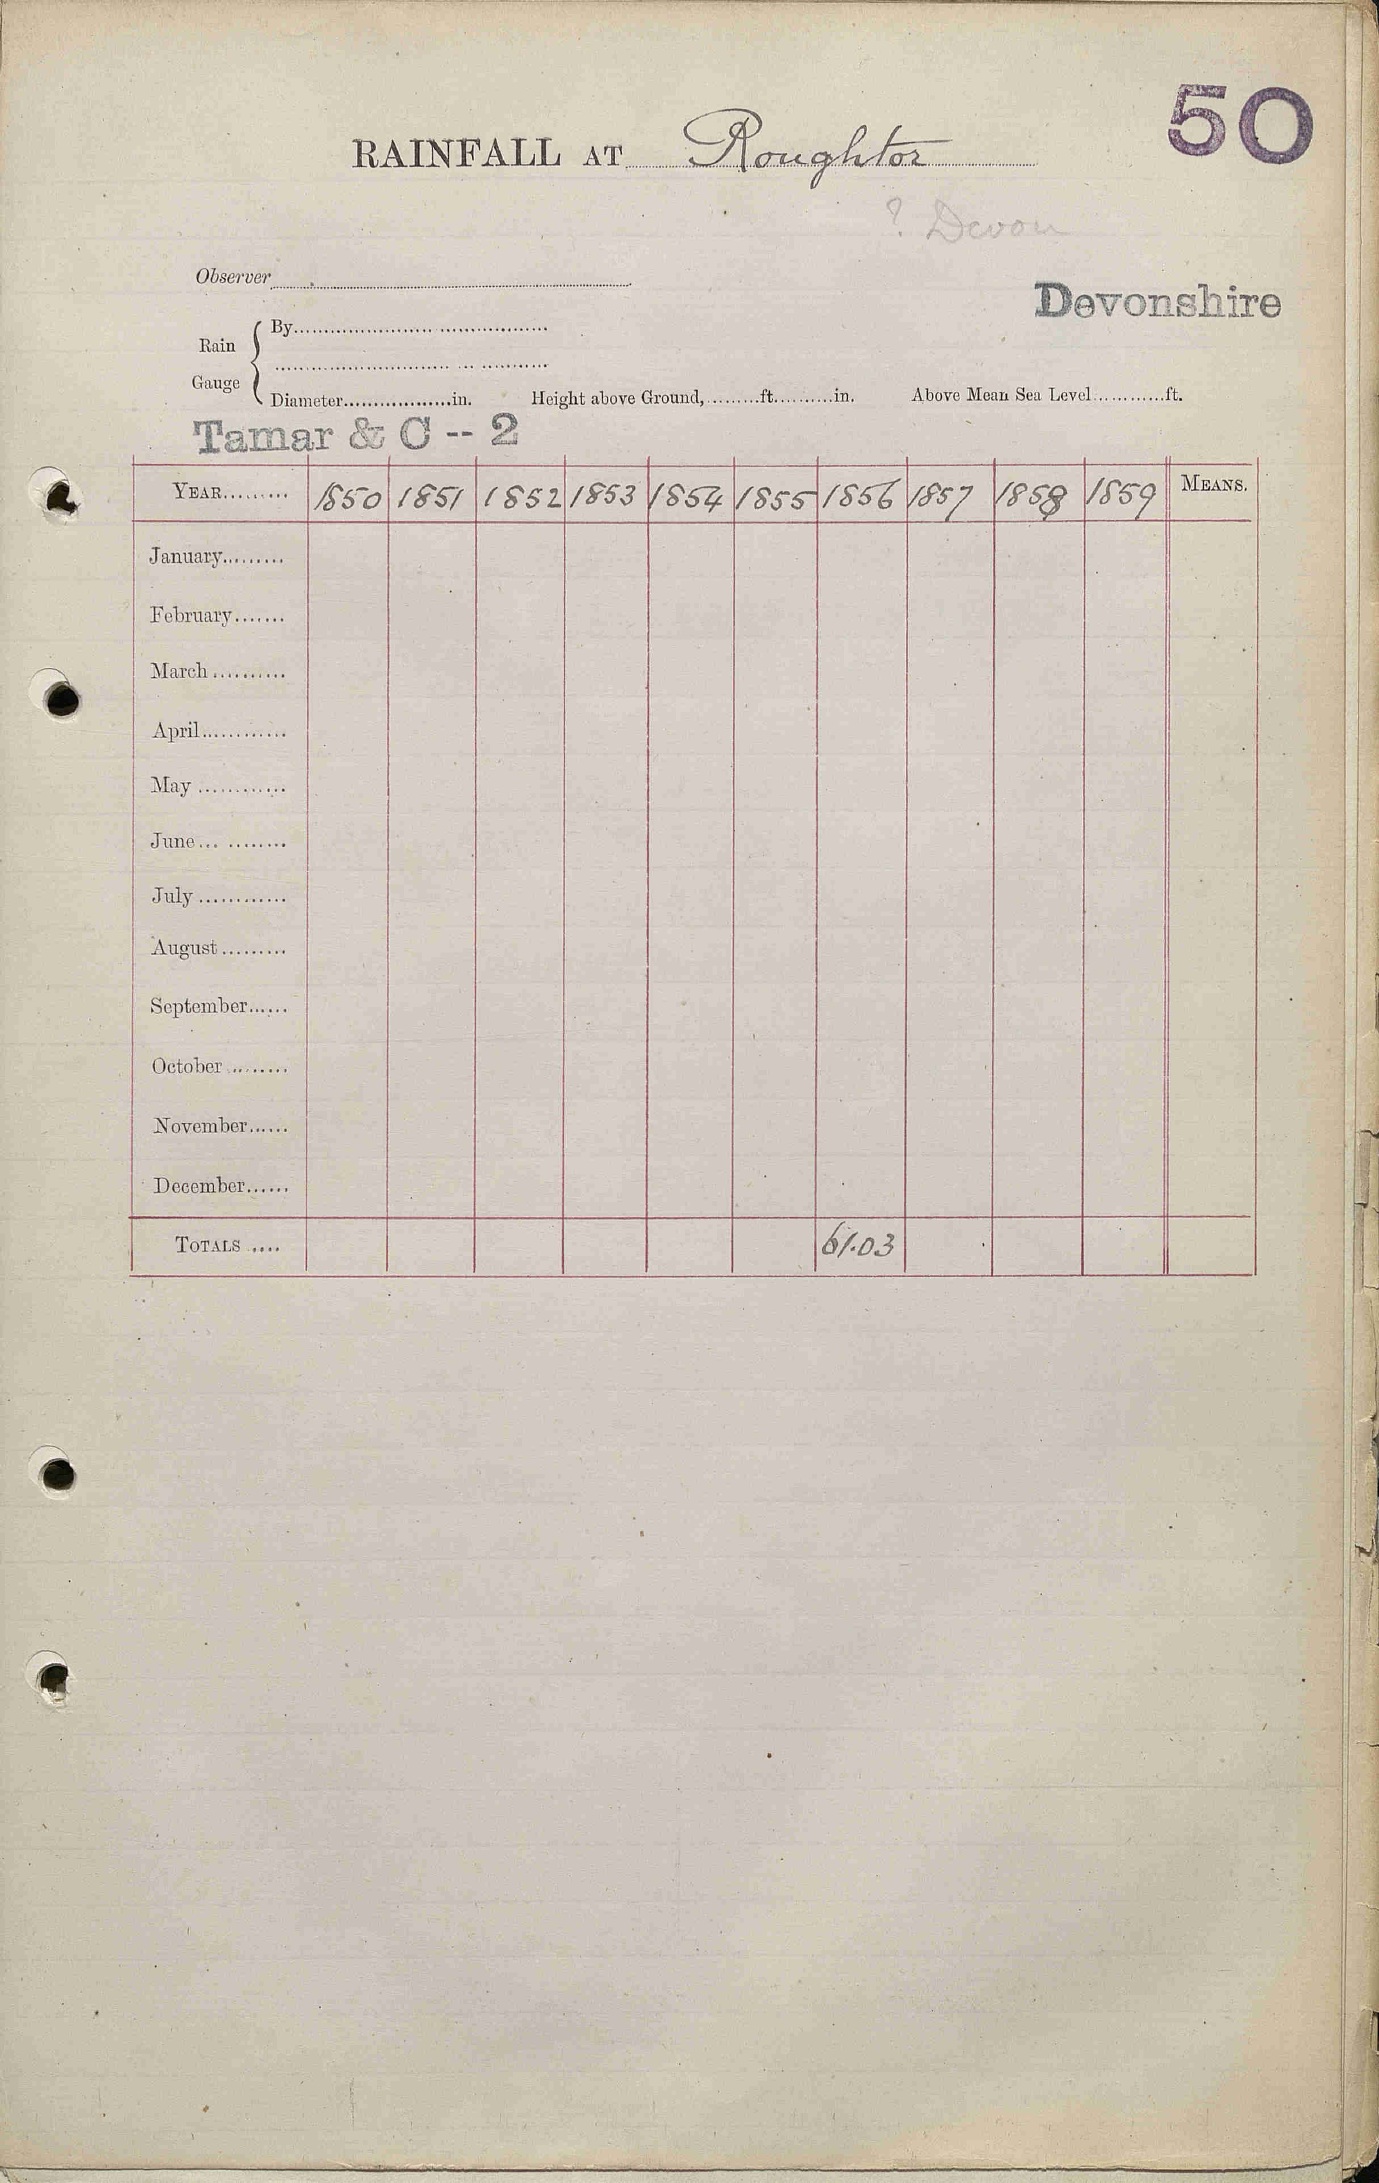 50
RAINFALL AT Roughtor
? Devon
Observer
Devonshire
Rain Gauge { By
Diameter in. Height above Ground, ft. in. Above Mean Sea Level ft.
Tamar & C -- 2
YEAR 1850 1851 1852 1853 1854 1855 1856 1857 1858 1859 MEANS.
January
February
March
April
May
June
July
August
September
October
November
December
TOTALS 61.03